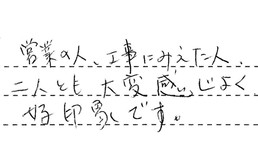 営業の人、工事にみえた人、
二人とも大変感じよく
好印象です。